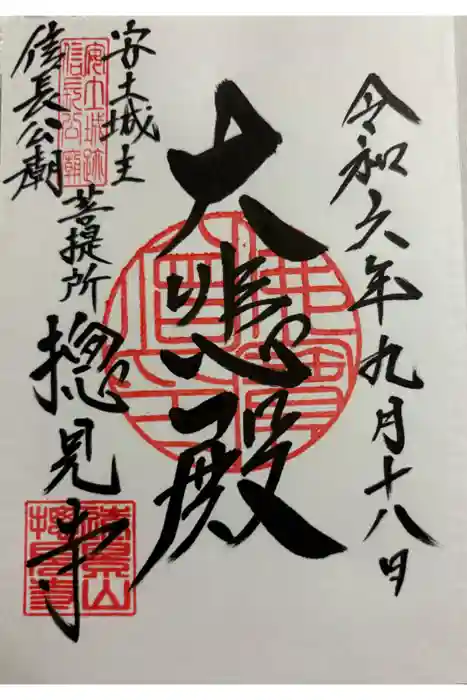 令和六年九月十八日
大悲殿
安土城主
信長公廟
菩提所
摠見寺
安土城跡
信長公廟
遠景山
摠見寺